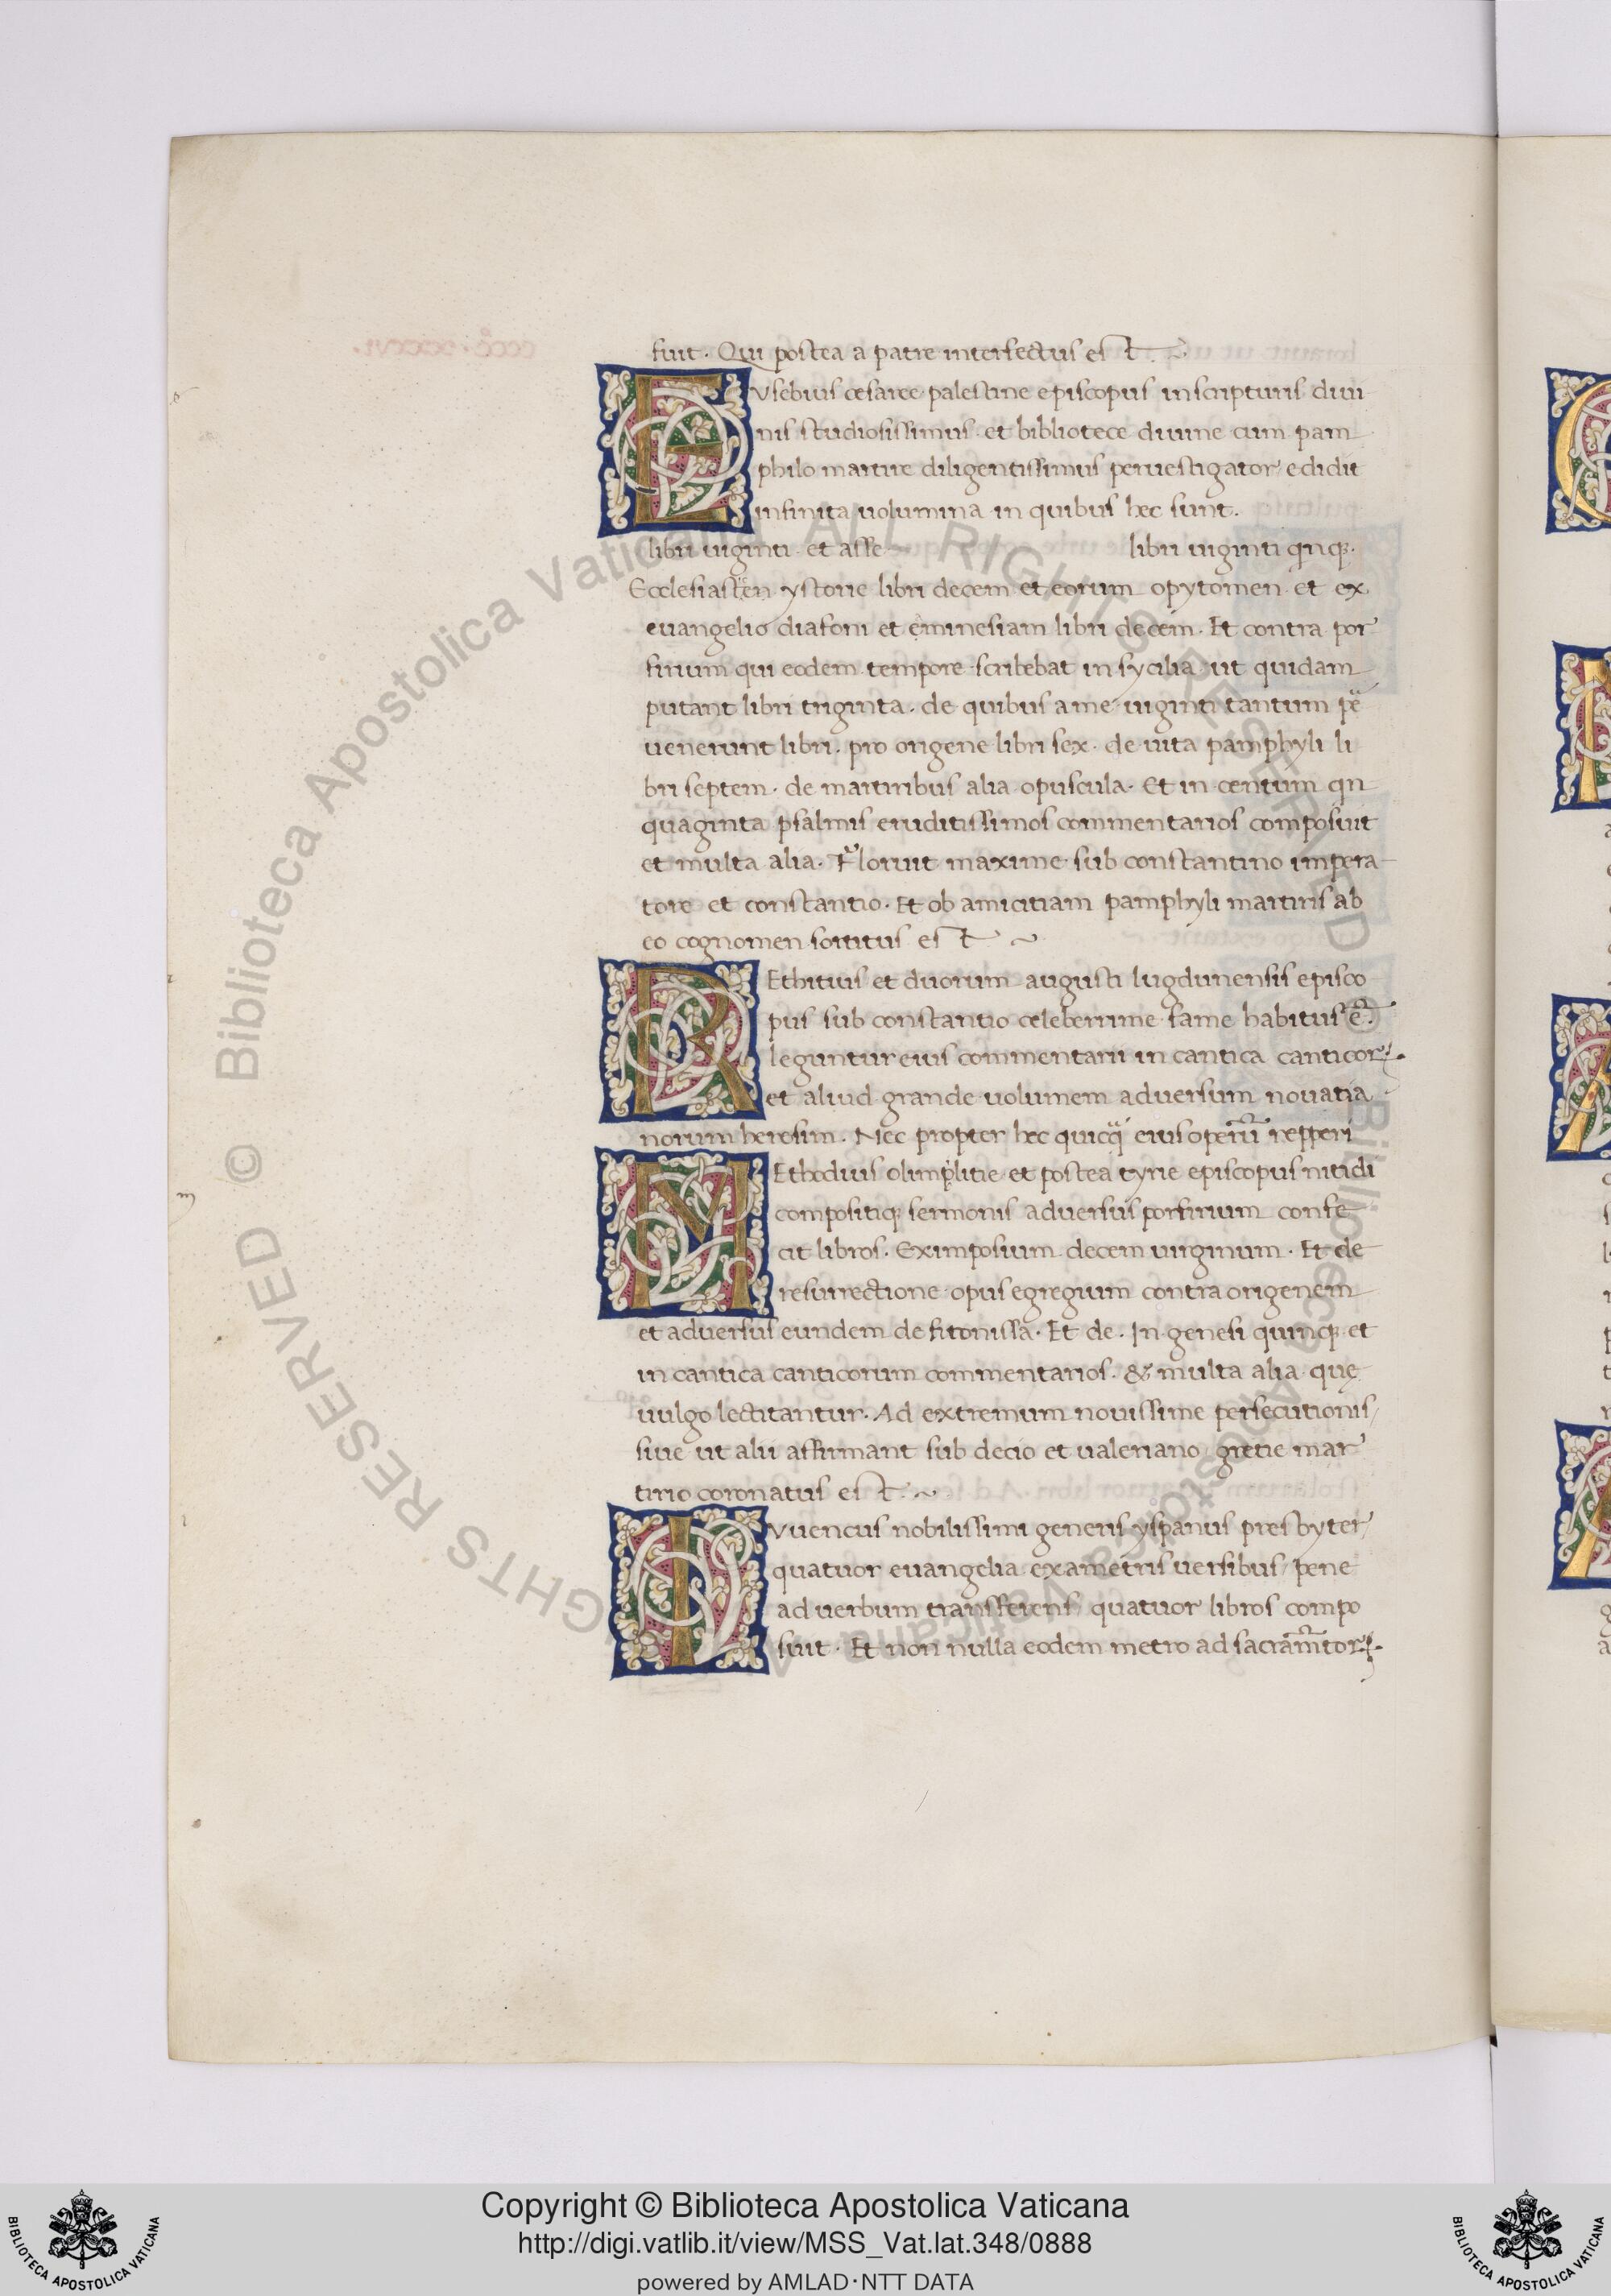 fuit. Qui postea a patre interfectus est.
EUsebius cesaree palestine episcopus in scripturis diui
nis studiosissimus et bibliotece diuine cum pam
philo martire diligentissimus peruestigator edidit
infinita uolumina in quibus hec sunt.
libri uiginti et asse libri uiginti qnq.
Ecclesiasten ystorie libri decem et eorum opytomen et ex
euangelio diafoni et eminesiam libri decem. Et contra por
firium qui eodem tempore scribebat in sycilia ut quidam
putant libri triginta. de quibus a me uiginti tantum pe
uenerunt libri. pro origene libri sex. de uita pamphyli li
bri septem. de martiribus alia opuscula. Et in centum qn
quaginta psalmis eruditissimos commentarios composuit
et multa alia. Floruit maxime sub constantino impera
tore et constantio. Et ob amicitiam pamphyli martiris ab
eo cognomen sortitus est
REthitius et duorum augusti lugdunensis episco
pus sub constantio celeberrime fame habitus ē.
leguntur eius commentarii in cantica canticorꝝ.
et aliud grande uolumem aduersum nouatia
norum heresim. Nec propter hec quicq̃ eius operum repperi
MEthodius olimplitie et postea tyrie episcopus nitidi
compositiq; sermonis aduersus porfirium confe
cit libros. Eximposium decem uirginum. Et de
resurrectione opus egregium contra origenem
et aduersus eundem de fitonissa. Et de. In genesi quinq; et
in cantica canticorum commentarios. & multa alia que
uulgo lectitantur. Ad extremum nouissime persecutionis
siue ut alii affirmant sub decio et ualeriano gretie mar
tirio coronatus est.
IVuencus nobilissimi generis yspanus presbyter
quatuor euangelia exametris uersibus pene
ad uerbum transferens quatuor libros compo
suit. Et non nulla eodem metro ad sacram̃torꝝ.
© Biblioteca Apostolica Vaticana ALL RIGHTS RESERVED
© Biblioteca Apostolica Vaticana ALL RIGHTS RESERVED
Copyright © Biblioteca Apostolica Vaticana
http://digi.vatlib.it/view/MSS_Vat.lat.348/0888
powered by AMLAD·NTT DATA
BIBLIOTECA APOSTOLICA VATICANA
BIBLIOTECA APOSTOLICA VATICANA